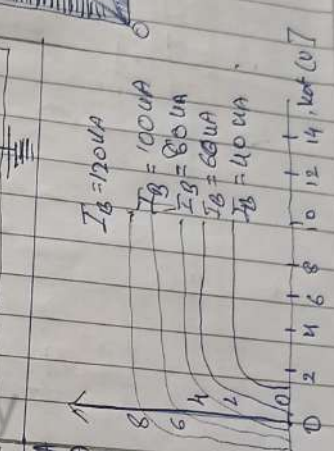 I_B = 120 uA
I_B = 100 uA
I_B = 80 uA
I_B = 60 uA
I_B = 40 uA
8
6
4
2
0
0 2 4 6 8 10 12 14 (V)